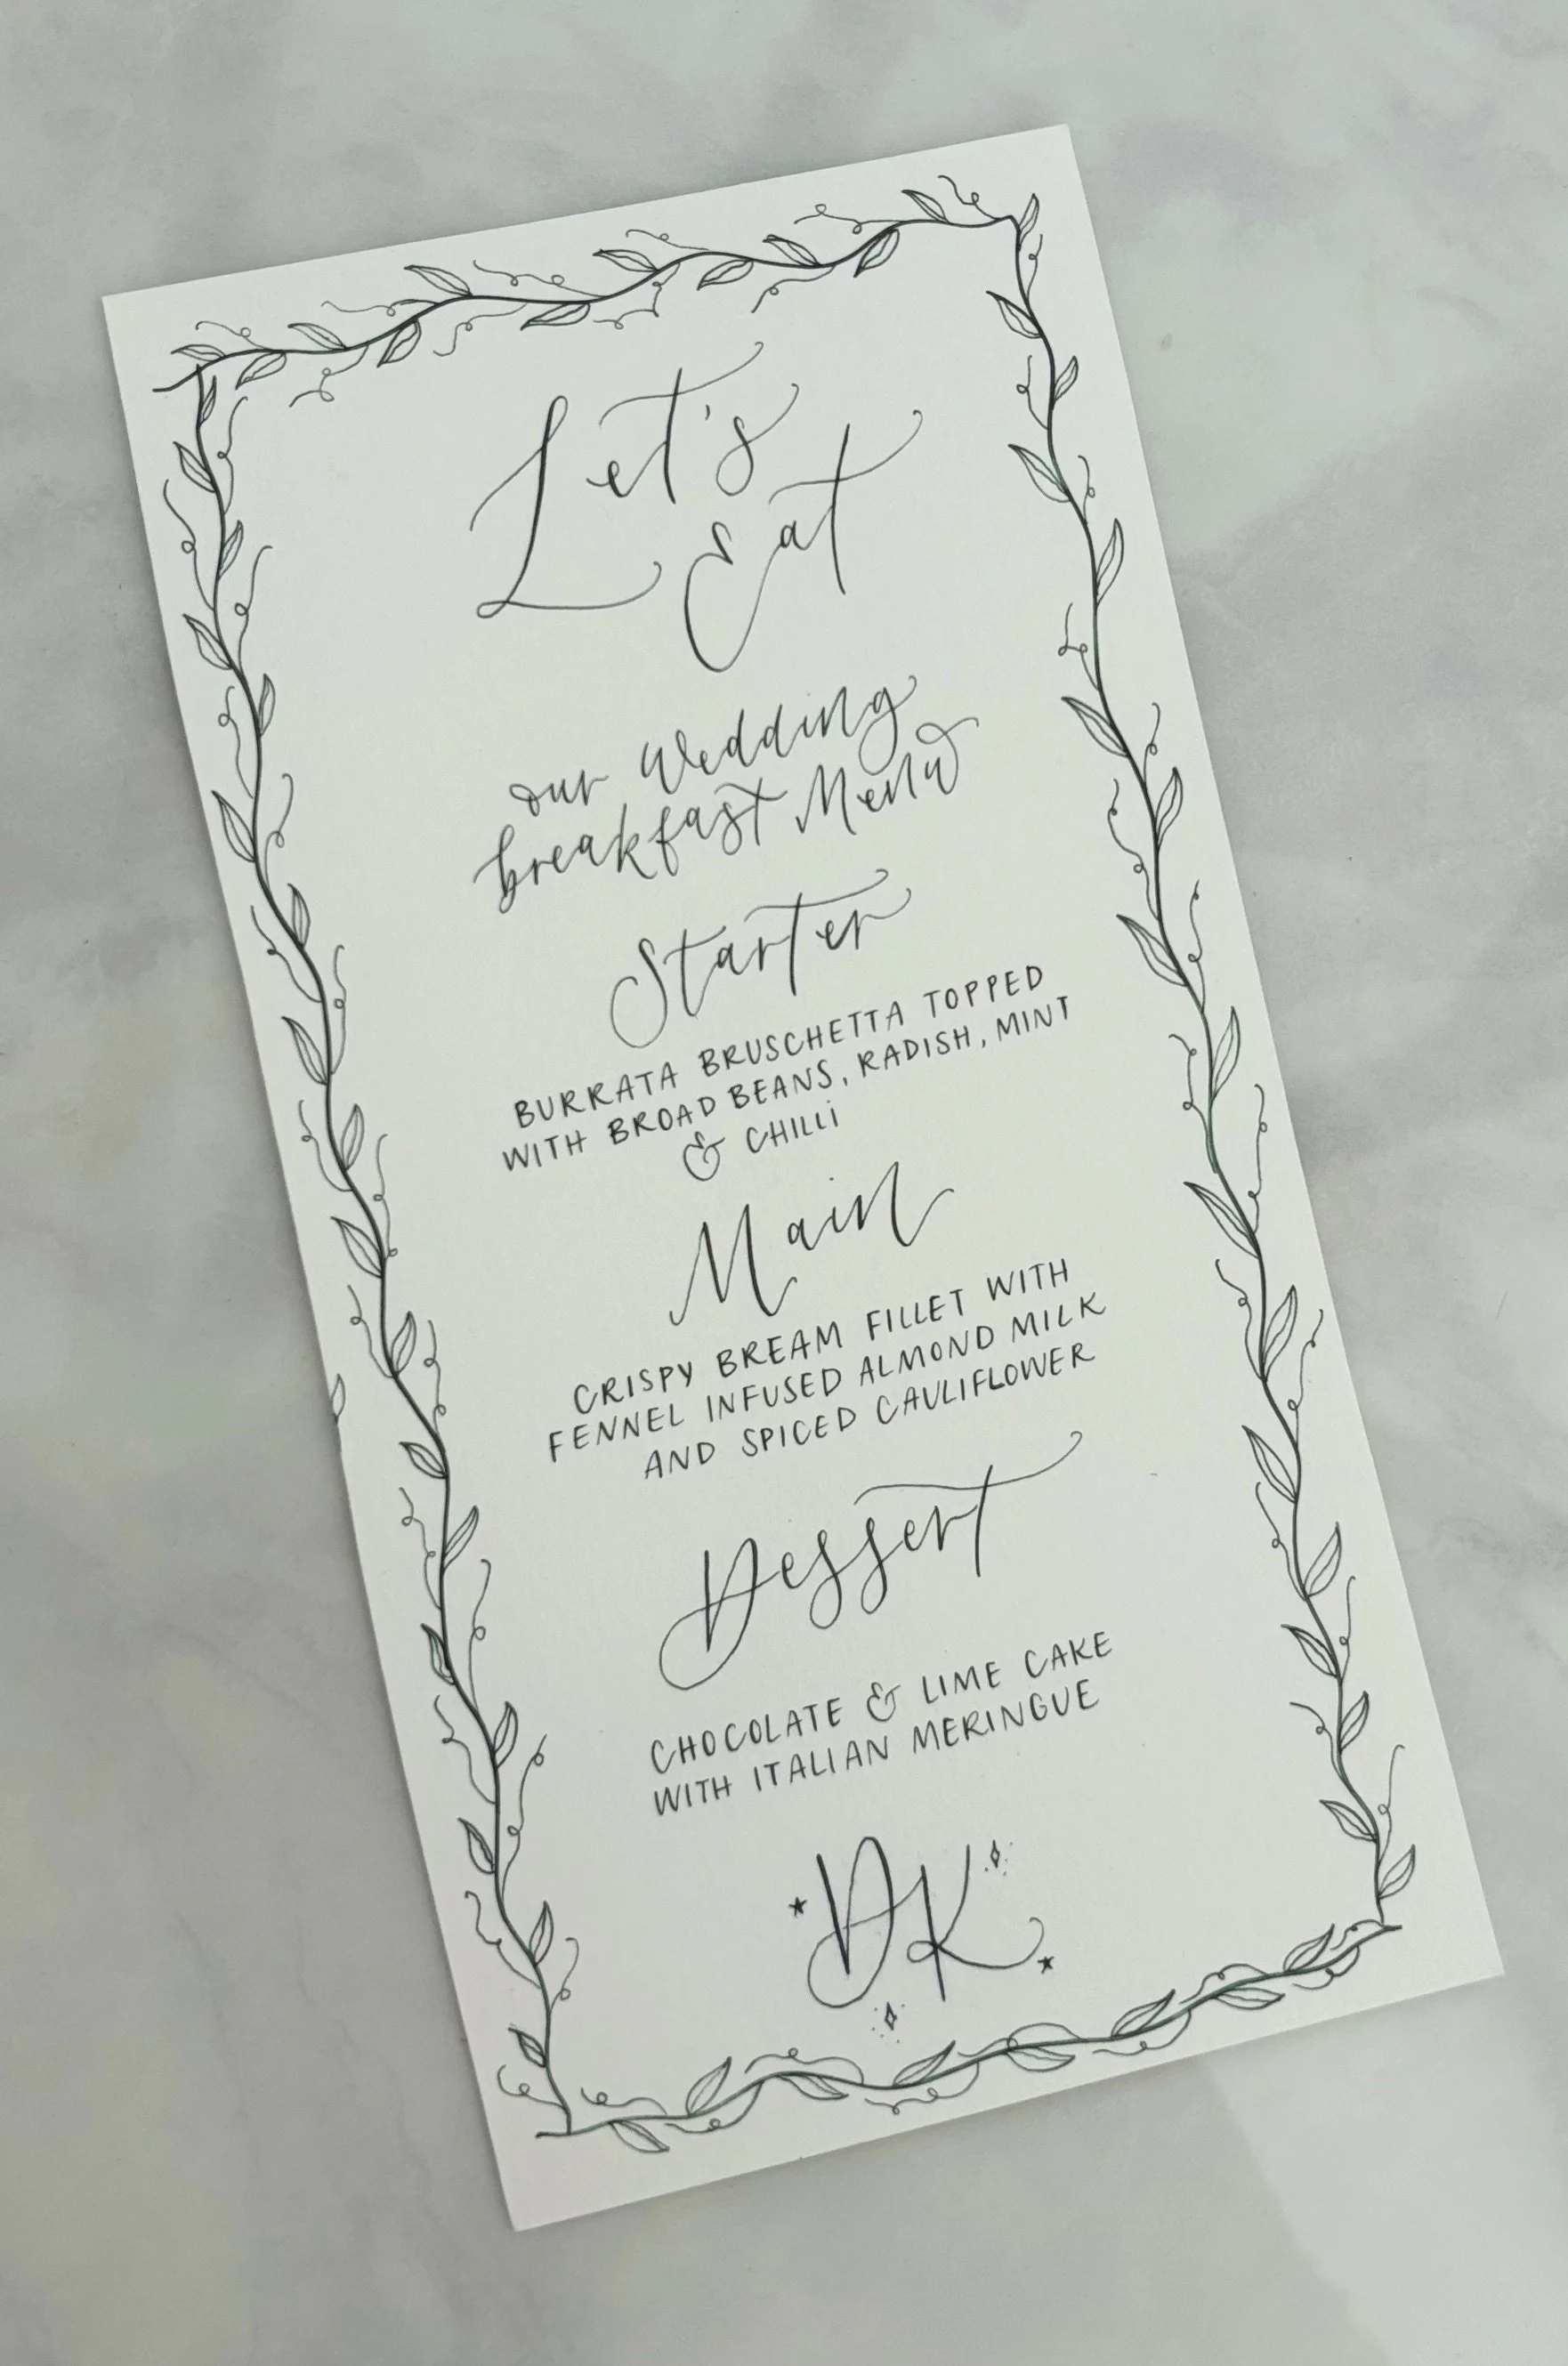 Let's
Eat
our Wedding
breakfast Menu
Starter
BURRATA BRUSCHETTA TOPPED
WITH BROAD BEANS, RADISH, MINT
& CHILLI
Main
CRISPY BREAM FILLET WITH
FENNEL INFUSED ALMOND MILK
AND SPICED CAULIFLOWER
Dessert
CHOCOLATE & LIME CAKE
WITH ITALIAN MERINGUE
DK